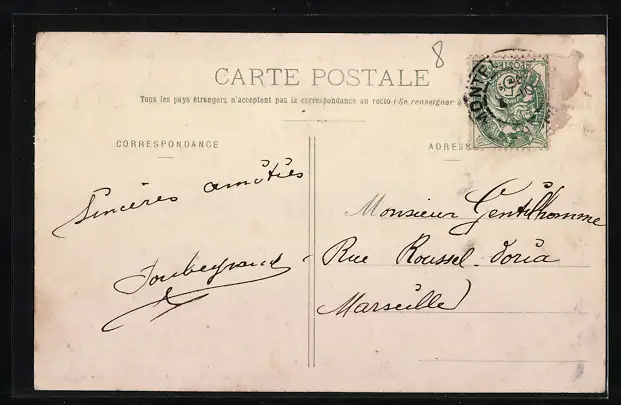 8
CARTE POSTALE
Tous les pays étrangers n'acceptent pas la correspondance au recto (Se renseigner à
CORRESPONDANCE
ADRESSE
MONTE
POSTES
Sincères amitiés
Monsieur Gentilhomme
Rue Roussel-Doria
Marseille